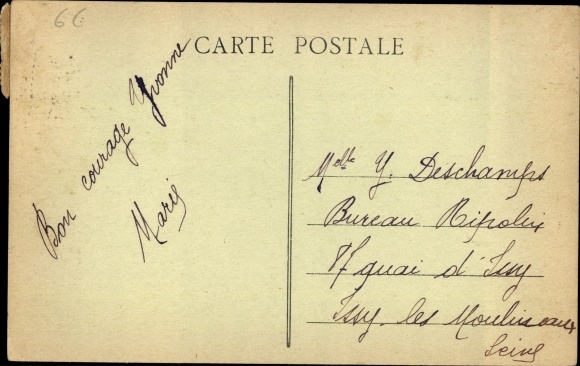 66
CARTE POSTALE
Bon courage Yvonne
Marie
Melle Y. Deschamps
Bureau Ripolin
quai d'Issy
Issy les Moulineaux
Seine